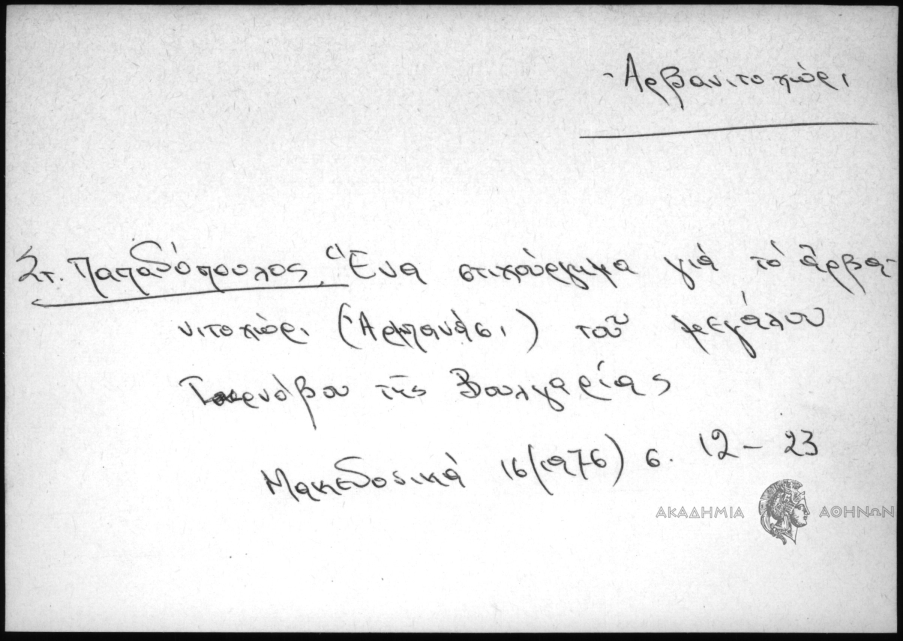 Ἀρβανιτοχώρι
Στ. Παπαδόπουλος, Ἕνα στιχούργημα γιά τό ἀρβα-
νιτοχώρι (Ἀρμπανάσι) τοῦ μεγάλου
Τυρνόβου τῆς Βουλγαρίας
Μακεδονικά 16(1976) σ. 12 – 23
ΑΚΑΔΗΜΙΑ ΑΘΗΝΩΝ